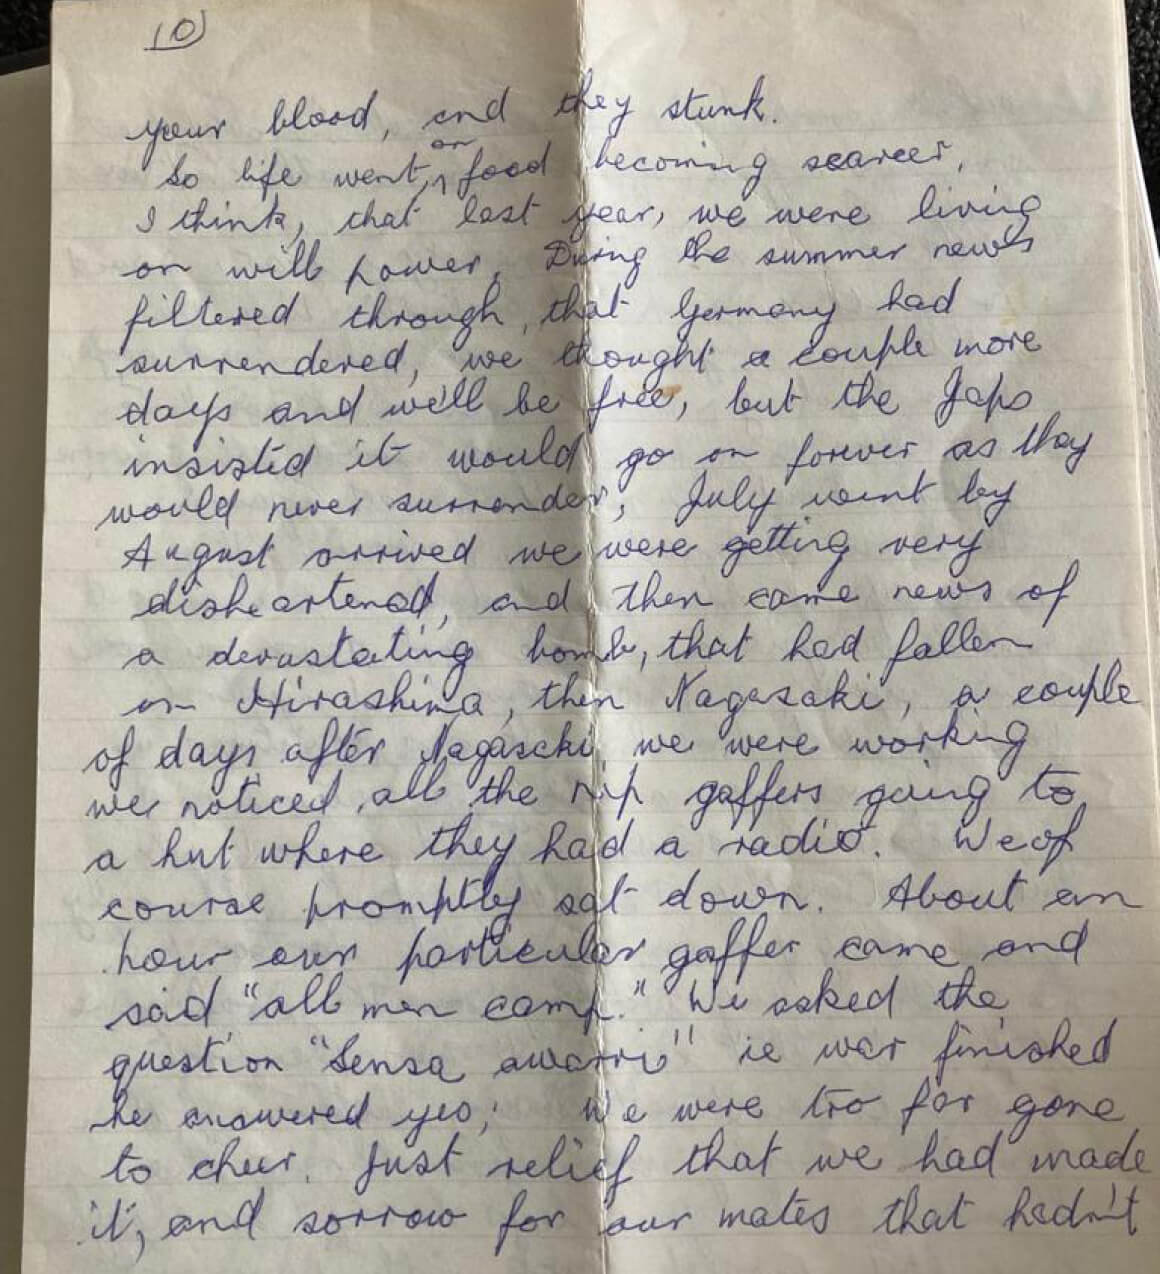 10
your blood, and they stunk.
So life went, on food becoming scarcer,
I think, that last year, we were living
on will power, During the summer news
filtered through, that Germany had
surrendered, we thought a couple more
days and we'll be free, but the Japs
insisted it would go on forever as they
would never surrender, July went by
August arrived we were getting very
disheartened, and then came news of
a devastating bomb, that had fallen
on Hirashima, then Nagasaki, a couple
of days after Nagasaki we were working
we noticed all the nip gaffers going to
a hut where they had a radio. We of
course promptly sat down. About an
hour our particular gaffer came and
said "all men camp." We asked the
question "Sensa awarri" ie war finished
he answered yes, We were too far gone
to cheer. Just relief that we had made
it, and sorrow for our mates that hadn't